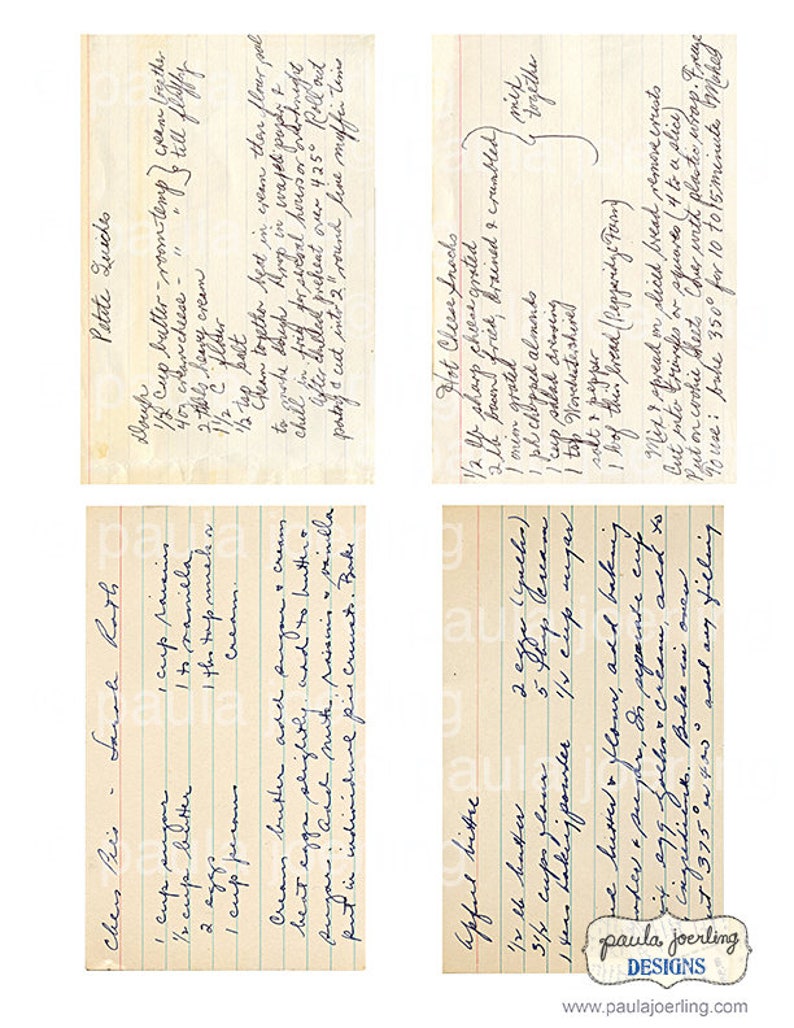 Petite Quiches
Dough
1/2 cup butter - room temp } cream together
4 oz creamcheese - " " } till fluffy
2 tbls heavy cream
1 1/2 C flour
1/2 tsp salt
Cream together beat in cream then flour, salt
to make dough. Wrap in waxed paper &
chill in frig for several hours or overnight
after chilled preheat oven 425° Roll out
pastry & cut into 2" round line muffin tins
Hot Cheese Snacks
1/2 lb sharp cheese grated
2 lb bacon fried, drained & crumbled
1 onion grated
1 pk chopped almonds
1 cup salad dressing
1 tsp Worchestershire
salt & pepper
mix
together
1 loaf thin bread (Pepperidge Farm)
Mix & spread on sliced bread, remove crusts
Cut into triangles or squares (4 to a slice)
Put on cookie sheets Cover with plastic wrap. Freeze
To use: bake 350° for 10 to 15 minutes
Chess Pies - Sarah Ruth
1 cup sugar 1 cup raisins
1/2 cup butter 1 ts vanilla
2 eggs 1 tbs top milk or
1 cup pecans cream.
Cream butter add sugar & cream
beat eggs slightly add to butter &
sugar. add nuts raisins & vanilla
put in individual pie crusts. Bake
1/2 lb butter 2 eggs (yolks)
3 1/2 cups flour 5 tbsp cream
1 teas baking powder 1/2 cup sugar
butter & flour, add baking
& sugar. In separate cup
egg yolks & cream, add to
ingredients. Bake in oven
at 375° or 400° add any filling
paula joerling
DESIGNS
www.paulajoerling.com